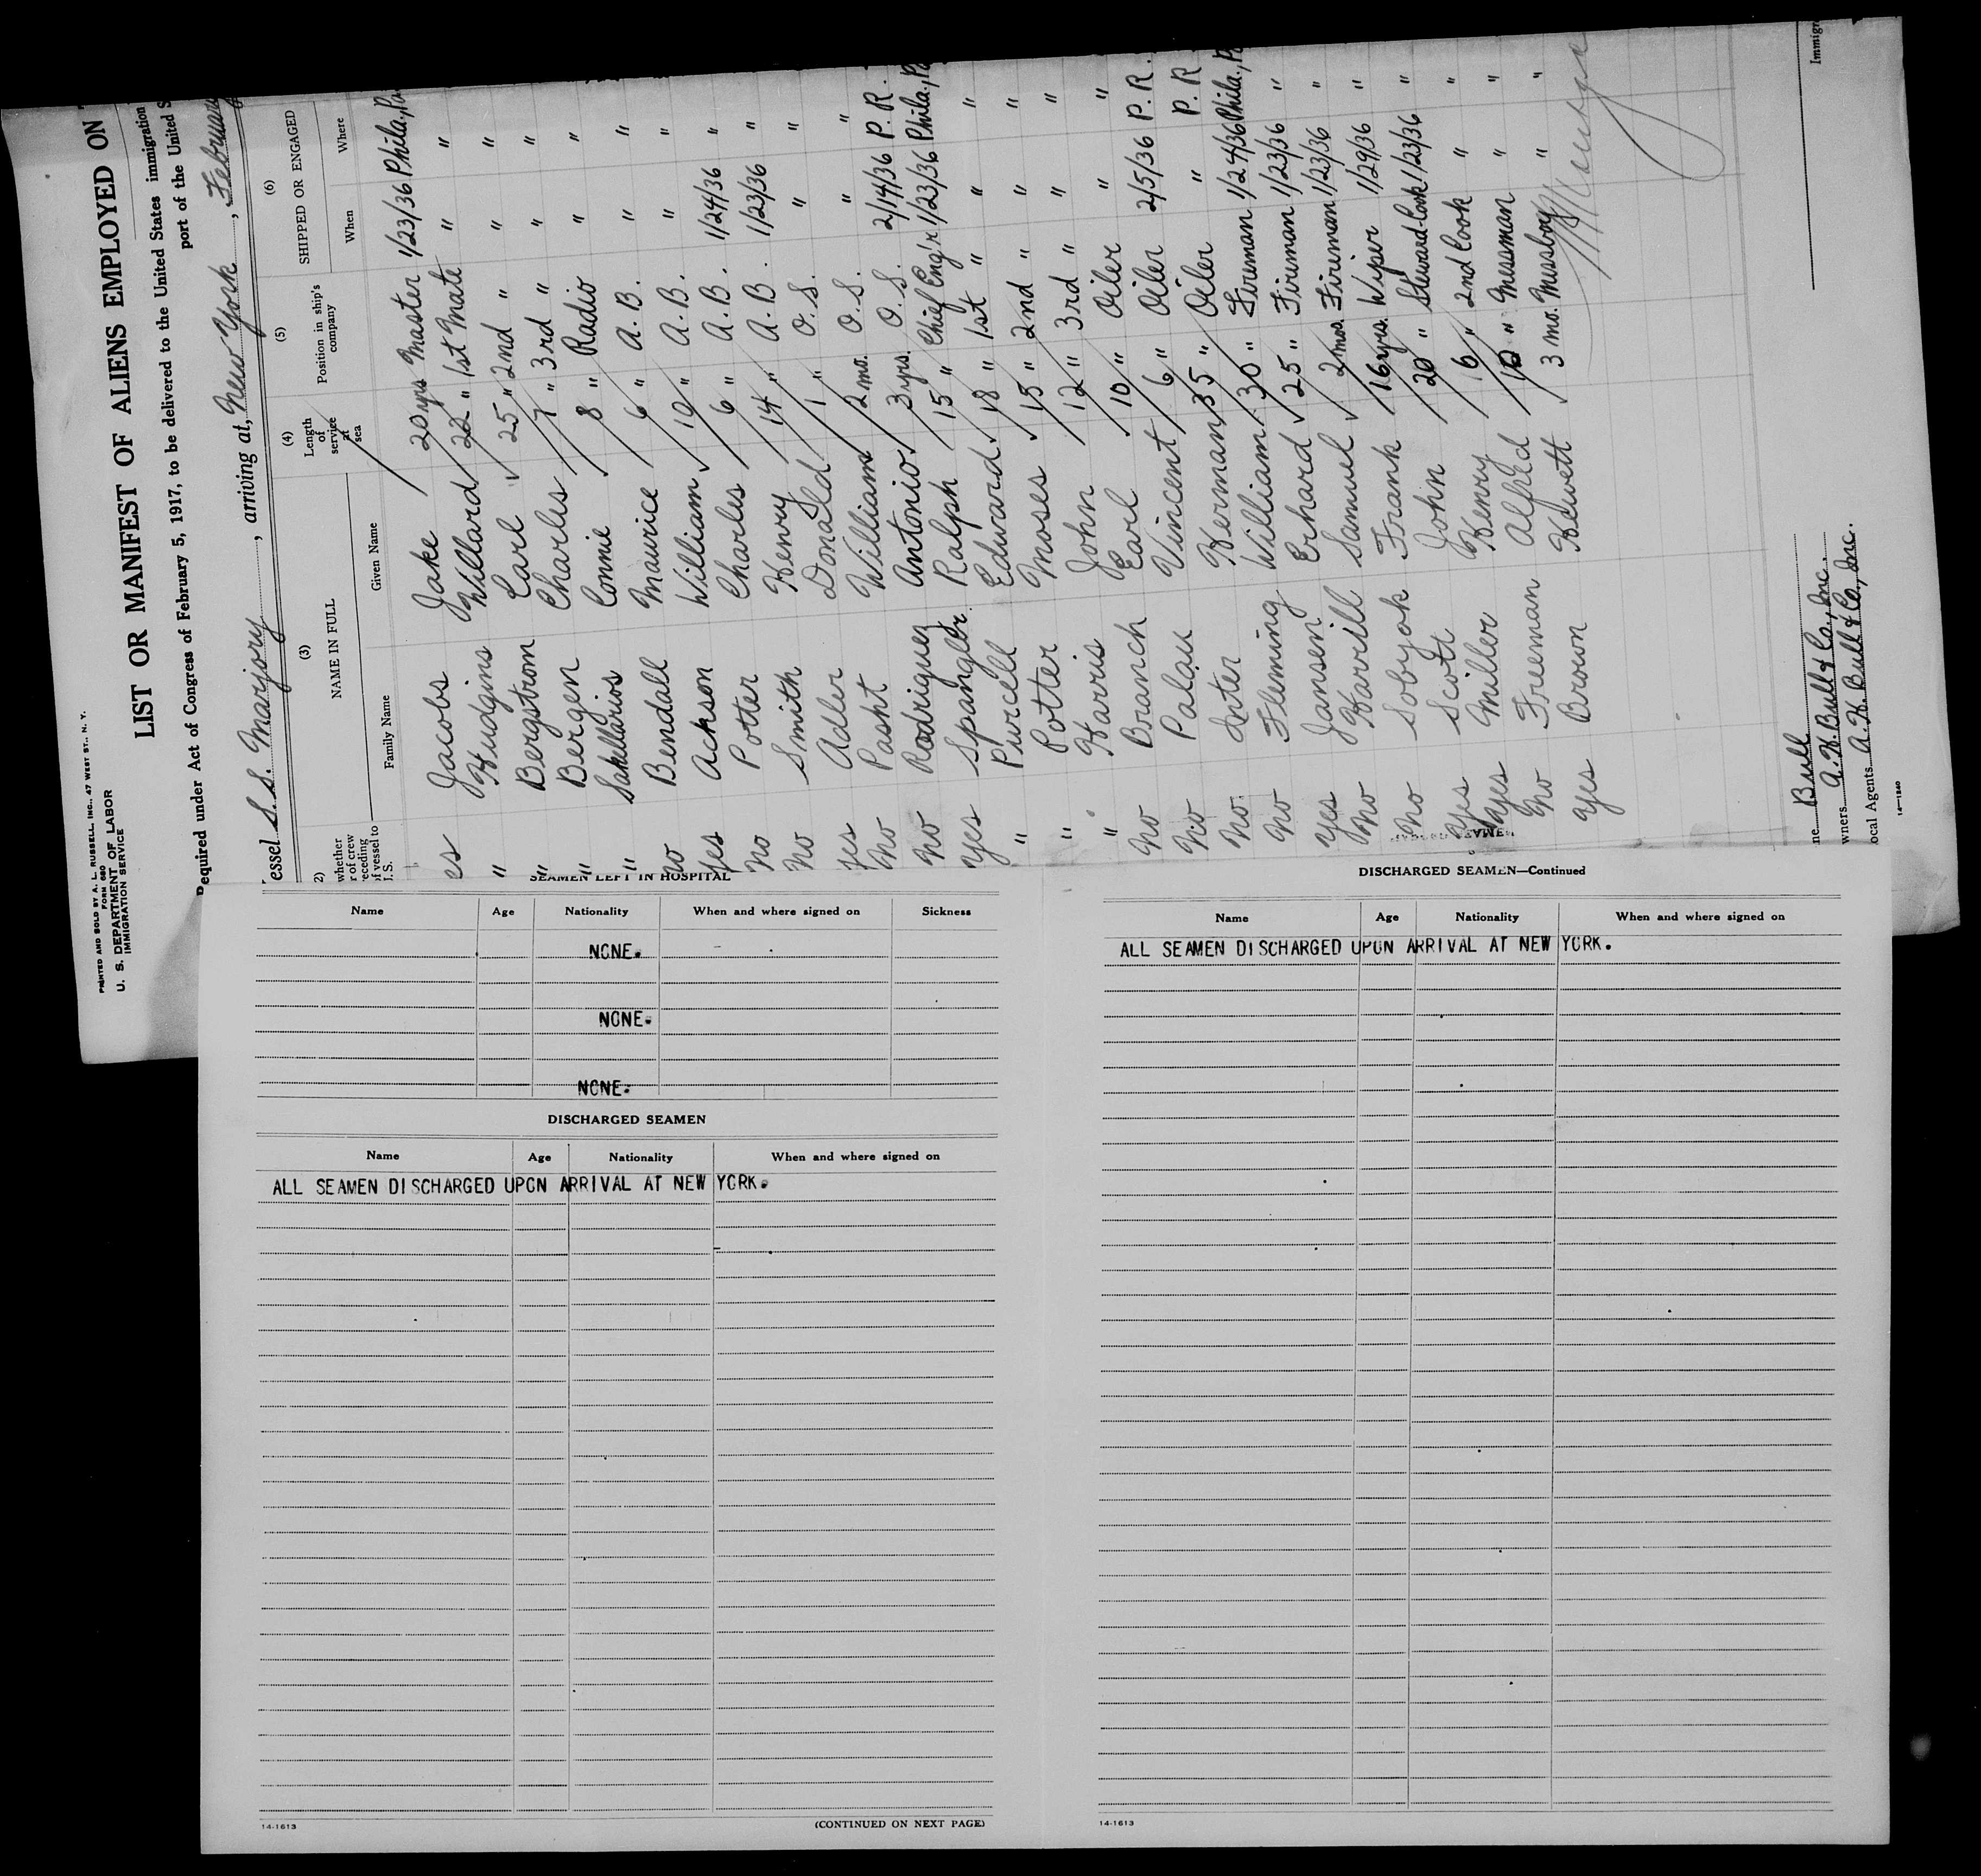 PRINTED AND SOLD BY A. L. RUSSELL, INC., 47 WEST ST., N. Y.
FORM 680
U. S. DEPARTMENT OF LABOR
IMMIGRATION SERVICE
LIST OR MANIFEST OF ALIENS EMPLOYED ON
Required under Act of Congress of February 5, 1917, to be delivered to the United States immigration
port of the United S
essel S.S. Marjory, arriving at, New York, February
2) whether r of crew receding of vessel to U.S.
(3) NAME IN FULL
Family Name Given Name
(4) Length of service at sea
(5) Position in ship's company
(6) SHIPPED OR ENGAGED
When Where
es Jacobs Jake 20 yrs Master 1/23/36 Phila., Pa
" Hudgins Willard 22 " 1st Mate " "
" Bergstrom Carl 25 " 2nd " " "
" Bergen Charles 7 " 3rd " " "
" Sakellarios Connie 8 " Radio " "
no Bendall Maurice 6 " A.B. " "
yes Achson William 10 " A.B. " "
no Potter Charles 6 " A.B. 1/24/36 "
no Smith Henry 14 " A.B. 1/23/36 "
yes Adler Donald 1 " O.S. " "
no Pasht William 2 mo. O.S. " "
no Rodriguez Antonio 3 yrs. O.S. 2/14/36 P.R.
yes Spangler Ralph 15 " Chief Eng'r 1/23/36 Phila., Pa
" Purcell Edward 18 " 1st " " "
" Potter Moses 15 " 2nd " " "
" Harris John 12 " 3rd " " "
no Branch Earl 10 " Oiler " "
no Palau Vincent 6 " Oiler 2/5/36 P.R.
no Herman 35 " Oiler " P.R
no Fleming William 30 " Fireman 1/24/36 Phila., Pa
yes Jansen Erhard 25 " Fireman 1/23/36 "
no Harrill Samuel 2 mos. Fireman 1/23/36 "
no Sobyok Frank 16 yrs. Wiper 1/29/36 "
yes Scott John 20 " Steward-Cook 1/23/36 "
yes Miller Henry 16 " 2nd Cook " "
no Freeman Alfred 10 " Messman " "
yes Brown Hewett 3 mo. Messboy " "
ne Bull
wners A. H. Bull & Co., Inc.
ocal Agents A. H. Bull & Co., Inc.
14—1240
Immigr
SEAMEN LEFT IN HOSPITAL
Name Age Nationality When and where signed on Sickness
NONE.
NONE.
NONE.
DISCHARGED SEAMEN
Name Age Nationality When and where signed on
ALL SEAMEN DISCHARGED UPON ARRIVAL AT NEW YORK.
14-1613
(CONTINUED ON NEXT PAGE)
DISCHARGED SEAMEN—Continued
Name Age Nationality When and where signed on
ALL SEAMEN DISCHARGED UPON ARRIVAL AT NEW YORK.
14-1613